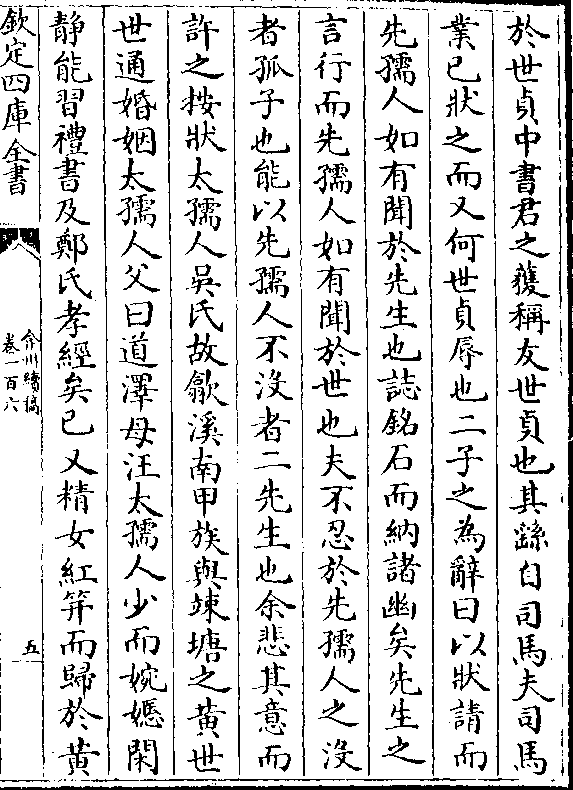 於世貞中書君之獲稱友世貞也其繇自司馬夫司馬
業已狀之而又何世貞辱也二子之為辭曰以狀請而
先孺人如有聞於先生也誌銘石而納諸幽矣先生之
言行而先孺人如有聞於世也夫不忍於先孺人之沒
者孤子也能以先孺人不沒者二先生也余悲其意而
許之按狀太孺人吳氏故歙溪南甲族與竦塘之黃世
世通婚姻太孺人父曰道澤母汪太孺人少而婉嫕閑
靜能習禮書及鄭氏孝經矣已又精女紅笄而歸於黃
欽定四庫全書
弇州續稿
卷一百六
五